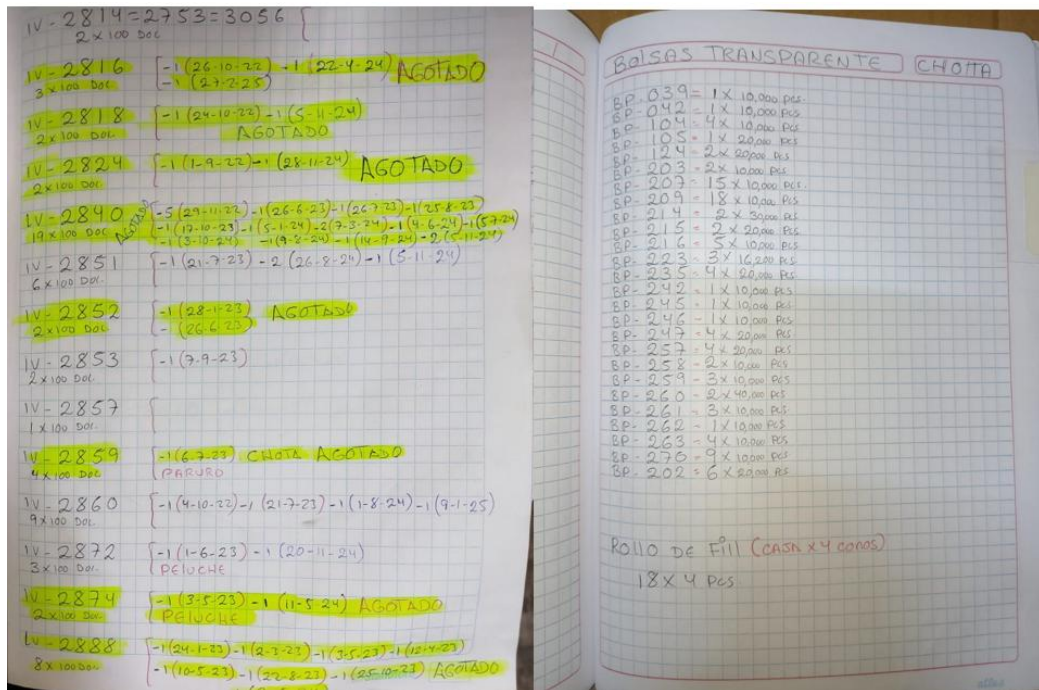 IV - 2814 = 2753 = 3056
2 x 100 Doc
IV - 2816 -1 (26-10-22) -1 (22-4-24) AGOTADO
3 x 100 Doc. -1 (27-2-25)
IV - 2818 -1 (24-10-22) -1 (5-11-24)
2 x 100 Doc. AGOTADO
IV - 2824 -1 (1-9-22) -1 (28-11-24) AGOTADO
2 x 100 Doc
IV - 2840 AGOTADO -5 (29-11-22) -1 (26-6-23) -1 (26-7-23) -1 (25-8-23)
19 x 100 Doc -1 (17-10-23) -1 (5-1-24) -2 (7-3-24) -1 (4-6-24) -1 (5-7-24)
-1 (3-10-24) -1 (9-8-24) -1 (14-9-24) -2 (5-11-24)
IV - 2851 -1 (21-7-23) -2 (26-8-24) -1 (5-11-24)
6 x 100 Doc.
IV - 2852 -1 (28-1-23) AGOTADO
2 x 100 Doc - (26-6-23)
IV - 2853 -1 (7-9-23)
2 x 100 Doc.
IV - 2857
1 x 100 Doc.
IV - 2859 -1 (6-7-23) CHOTA AGOTADO
4 x 100 Doc PARURO
IV - 2860 -1 (4-10-22) -1 (21-7-23) -1 (1-8-24) -1 (9-1-25)
9 x 100 Doc.
IV - 2872 -1 (1-6-23) -1 (20-11-24)
3 x 100 Doc. PELUCHE
IV - 2874 -1 (3-5-23) -1 (11-5-24) AGOTADO
2 x 100 Doc PELUCHE
IV - 2888 -1 (24-1-23) -1 (2-3-23) -1 (3-5-23) -1 (12-4-23)
8 x 100 Doc -1 (10-5-23) -1 (22-8-23) -1 (25-10-23) AGOTADO
BOLSAS TRANSPARENTE CHOTTA
BP - 039 = 1 x 10,000 pcs.
BP - 042 = 1 x 10,000 pcs
BP - 104 = 4 x 10,000 pcs
BP - 105 = 1 x 20,000 pcs
BP - 124 = 2 x 20,000 pcs
BP - 203 = 2 x 10,000 pcs
BP - 207 = 15 x 10,000 pcs.
BP - 209 = 18 x 10,000 pcs
BP - 214 = 2 x 30,000 pcs
BP - 215 = 2 x 20,000 pcs
BP - 216 = 5 x 10,000 pcs
BP - 223 = 3 x 16,200 pcs
BP - 235 = 4 x 20,000 pcs
BP - 242 = 1 x 10,000 pcs
BP - 245 = 1 x 10,000 pcs
BP - 246 - 1 x 10,000 pcs
BP - 247 = 4 x 20,000 pcs
BP - 257 = 4 x 20,000 pcs
BP - 258 - 2 x 10,000 pcs
BP - 259 - 3 x 10,000 pcs
BP - 260 - 2 x 40,000 pcs
BP - 261 = 3 x 10,000 pcs
BP - 262 - 1 x 10,000 pcs
BP - 263 = 4 x 10,000 pcs
BP - 270 = 9 x 10,000 pcs
BP - 202 = 6 x 20,000 pcs
ROLLO DE Fill (CAJA x 4 conos)
18 x 4 pcs